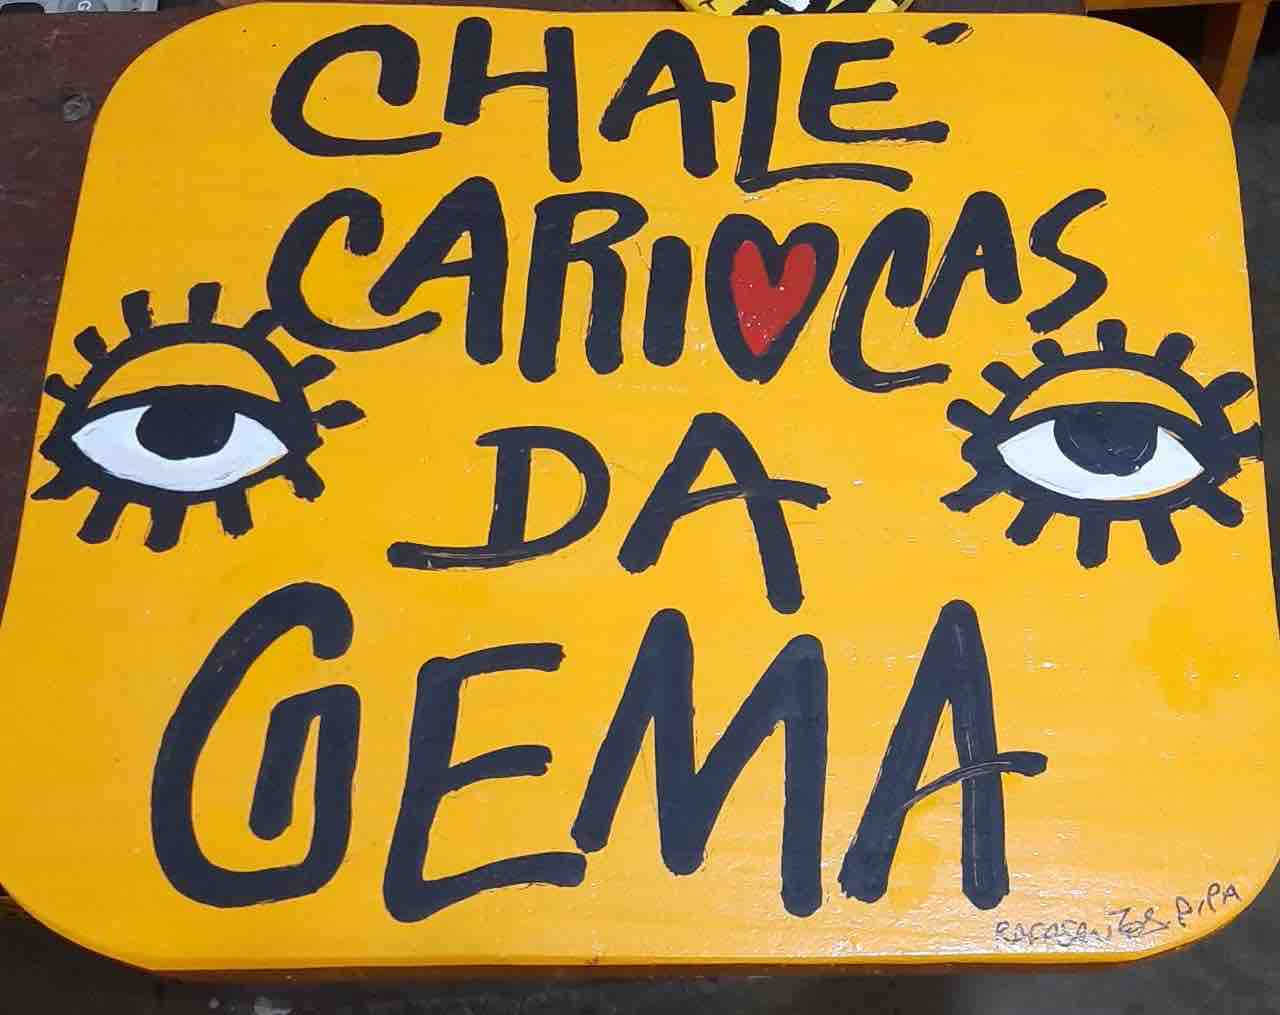 CHALÉ
CARIOCAS
DA
GEMA
PIPA